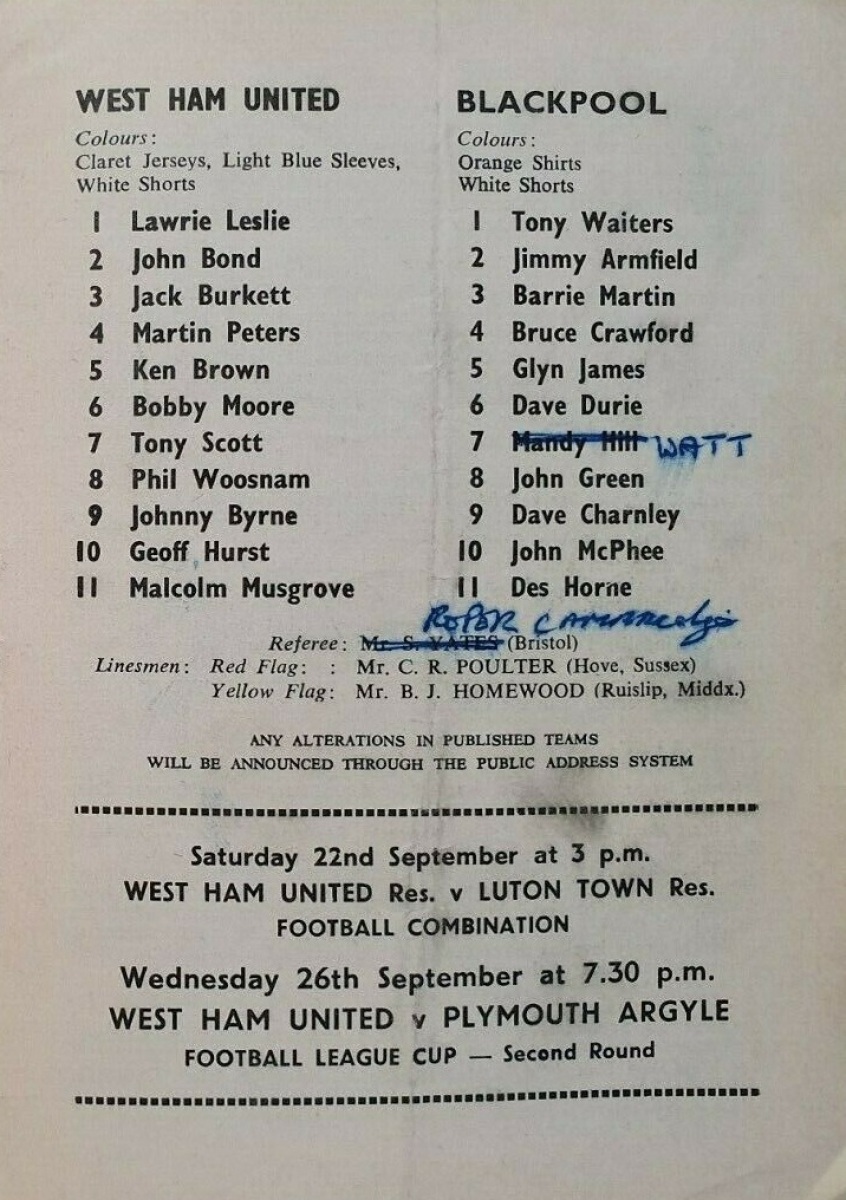 WEST HAM UNITED
Colours:
Claret Jerseys, Light Blue Sleeves,
White Shorts
1 Lawrie Leslie
2 John Bond
3 Jack Burkett
4 Martin Peters
5 Ken Brown
6 Bobby Moore
7 Tony Scott
8 Phil Woosnam
9 Johnny Byrne
10 Geoff Hurst
11 Malcolm Musgrove
BLACKPOOL
Colours:
Orange Shirts
White Shorts
1 Tony Waiters
2 Jimmy Armfield
3 Barrie Martin
4 Bruce Crawford
5 Glyn James
6 Dave Durie
7 Mandy Hill WATT
8 John Green
9 Dave Charnley
10 John McPhee
11 Des Horne
ROPER
Referee: Mr. S. YATES (Bristol)
Linesmen: Red Flag: : Mr. C. R. POULTER (Hove, Sussex)
Yellow Flag: Mr. B. J. HOMEWOOD (Ruislip, Middx.)
ANY ALTERATIONS IN PUBLISHED TEAMS
WILL BE ANNOUNCED THROUGH THE PUBLIC ADDRESS SYSTEM
Saturday 22nd September at 3 p.m.
WEST HAM UNITED Res. v LUTON TOWN Res.
FOOTBALL COMBINATION
Wednesday 26th September at 7.30 p.m.
WEST HAM UNITED v PLYMOUTH ARGYLE
FOOTBALL LEAGUE CUP — Second Round